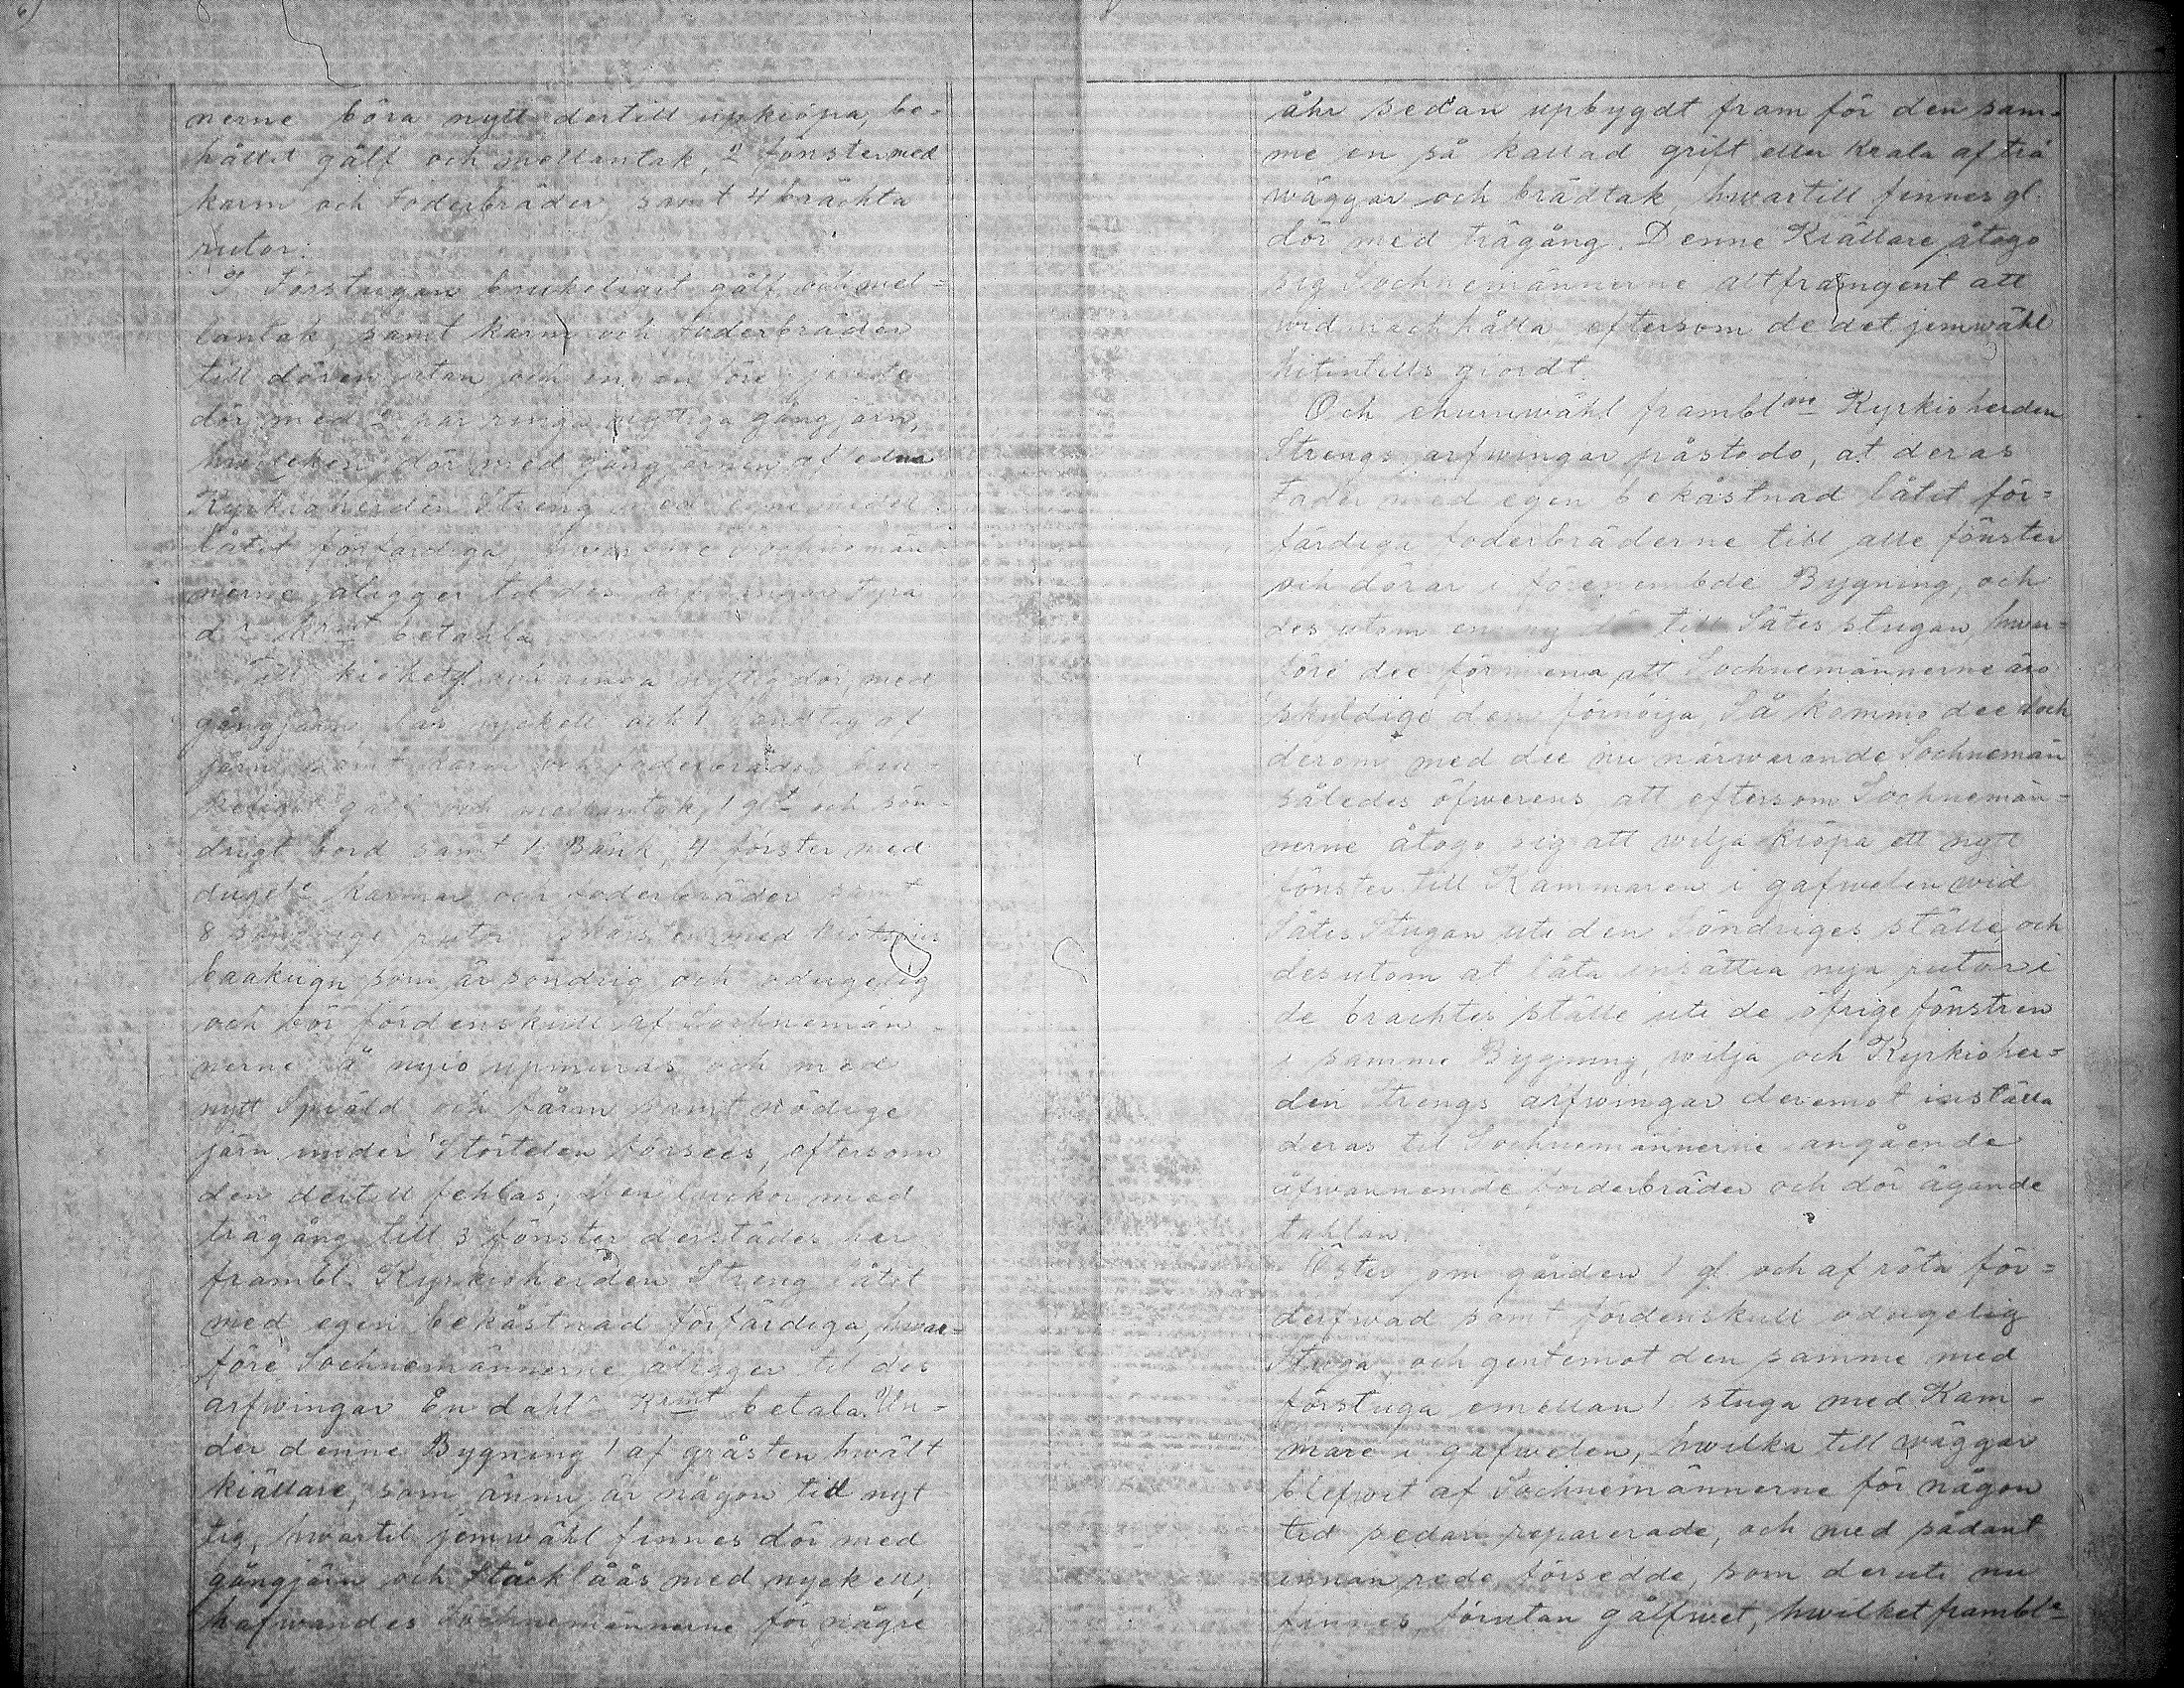 6)
nerne böra nytt dertill upkiöpa, be-
hållit gålf och mellantak, 2 fönster med
karm och foderbräder, samt 4 brächta
rutor.
I Förstugan brukeliait gålf och mel-
lantak, samt karm och foderbräder
till dören utan och innan före
dör med 2 par ringa nyttiga gångjärn,
hwilcken dör med gångjärnen afledna
Kyrkioherden Streng med egne medel
låtit förfärdiga, Sochnemän-
nerne åligger til des arfwingar Fyra
d:r Krmt betahla
Till kiöket gl. och ringa nyttig dör, med
gångjärn, lås nyckell och 1 handtag af
järn samt karm och foderbräder, bru-
keligit gålf och mellantak, 1 glt och sön-
drigt bord samt 1 Bänk, 4 fönster med
dugelc karmar och foderbräder samt
8 söndrige rutor, med
baakugn som är söndrig och odugelig
och bör fördenskull af Sochnemän-
nerne å nyio upmuras och med
nytt Spiäld och samt nödige
järn under Störtelen försees, eftersom
den dertill fehlas, Men luckor med
trägång till 3 fönster derstädes har
frambl. Kyrkioherden Streng låtit
med egen bekåstnad förfärdiga, hwar-
före Sochnemännerne åligger til des
arfwingar En dahlr Krmt betala. Un-
der denne Bygning 1 af gråsten hwält
kiällare, som ännu är någon tid nyt
tig, hwartil jemwähl finnes dör med
gångjärn och Stäcklåås med nyckell,
hafwandes Sochnemännerne för någre
åhr sedan upbygdt fram för den sam-
me en så kallad grift eller Krala af trä
wäggar och brädtak, hwartill finnes gl.
dör med trägång. Denne Kiällare åtogo
sig Sochnemännerne altframgent att
wid macht hålla eftersom de det jemwähl
hitintills giordt.
Och ehuruwähl framblne Kyrkioherden
Strengs arfwingar påstodo, at deras
Fader med egen bekåstnad låtit för-
färdiga foderbräderne till alle fönster
och dörar i förenembde Bygning, och
des utom en ny dör till Sätes stugan, hwar-
före dee förmena att Sochnemännerne äro
skyldige dem förnöija, Så kommo dee doch
derom med die nu närwarande Sochnemän
således öfwerens, att eftersom Sochnemän-
nerne åtogo sig att wilja kiöpa ett nytt
fönster till Kammaren i gafwelen wid
Sätes Stugan uti den Söndriges ställe, och
desutom at låta insättia nya rutor i
de brachtes ställe uti de öfrige fönstren
i samme Bygning, wilja och Kyrkioher-
den Strengs arfwingar deremot inställa
deras til Sochnemännerne angående
åfwannemde foderbräder och dör ägande
tahlan.
Öster om gården 1 gl. och af röta för-
derfwad samt fördenskull odugelig
Stuga, och gentemot den samme med
förstuga emellan 1 stuga med Kam-
mare i gafwelen, hwilka till wäggar
blefwit af Sochnemännerne för någon
tid sedan reparerade, och med sådant
innanrede försedde, som deruti nu
finnes, förutan gålfwet, hwilket framble